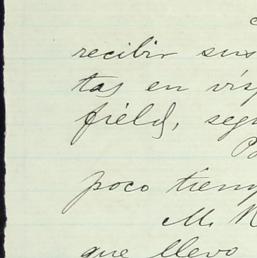 recibir sus
tas en vísp
field, segu
poco tiemp
M. R
que llevo